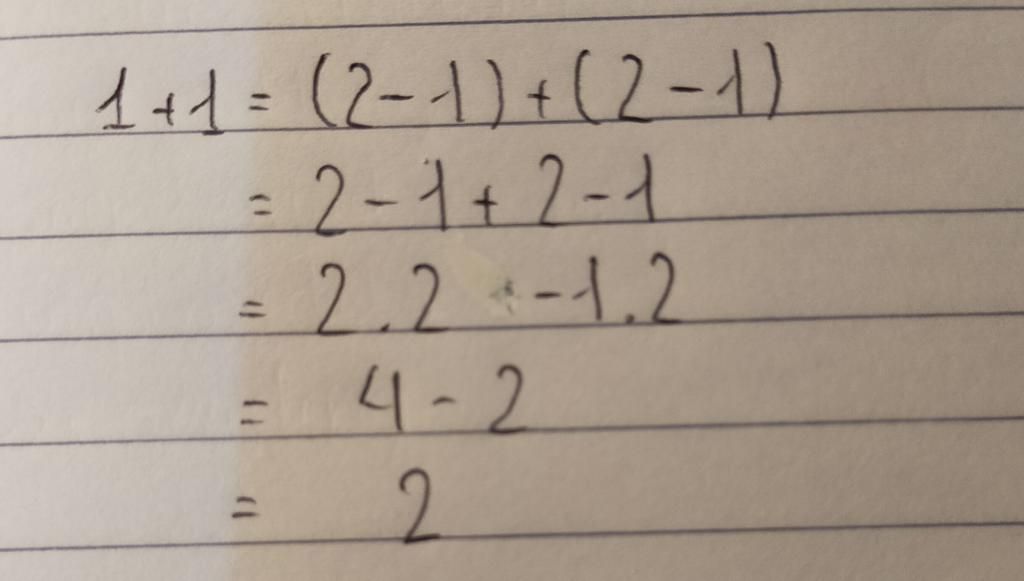 1+1 = (2-1)+(2-1)
= 2-1+2-1
= 2.2 -1.2
= 4-2
= 2